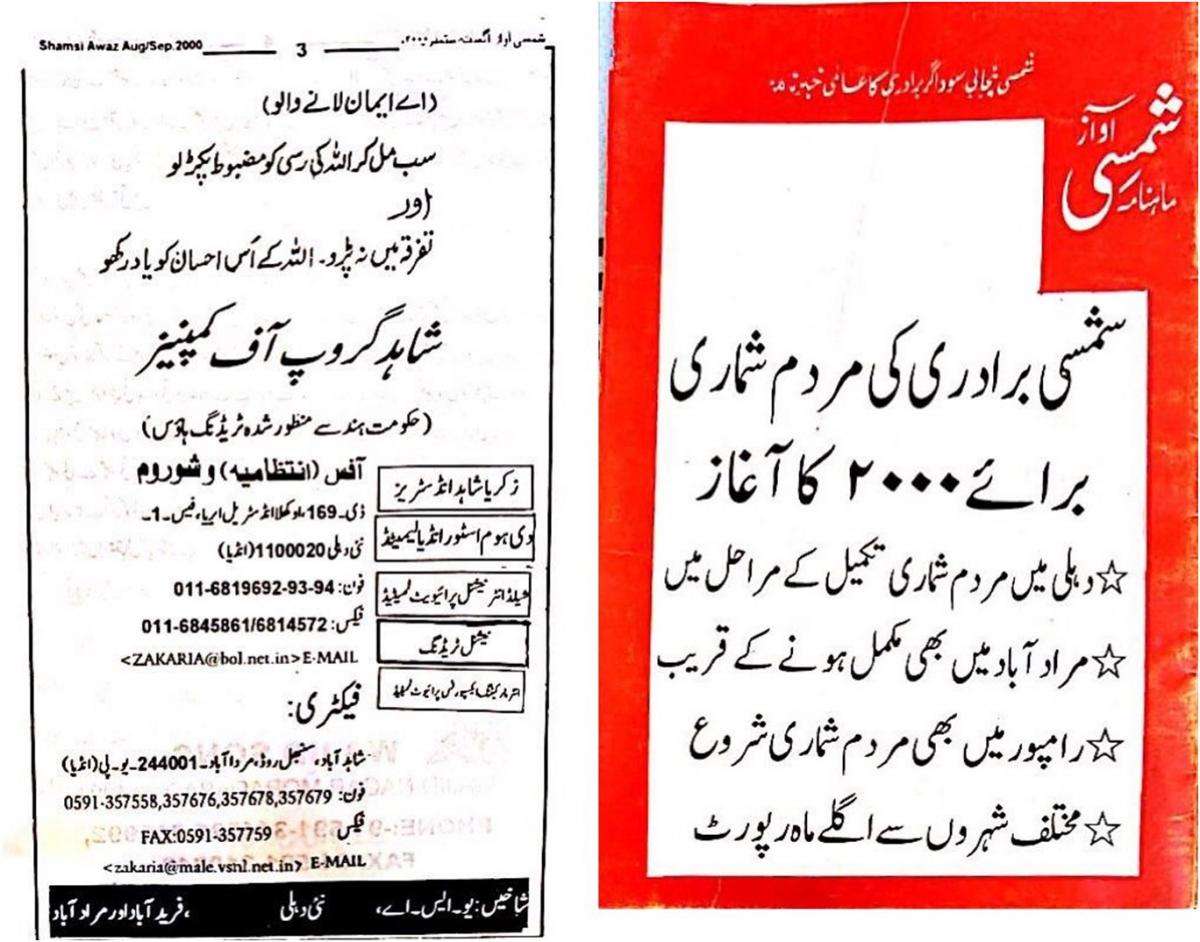 Shamsi Awaz Aug/Sep.2000
3
شمسی آواز اگست، ستمبر ۲۰۰۰ء
(اے ایمان لانے والو)
سب مل کر اللہ کی رسی کو مضبوط پکڑ لو
اور
تفرقہ میں نہ پڑو۔ اللہ کے اُس احسان کو یاد رکھو
شاہد گروپ آف کمپنیز
(حکومت ہند سے منظور شدہ ٹریڈنگ ہاؤس)
آفس (انتظامیہ) و شوروم
ڈی۔169، اوکھلا انڈسٹریل ایریا، فیس۔1۔
نئی دہلی 1100020 (انڈیا)
فون: 011-6819692-93-94
فیکس: 011-6845861/6814572
<ZAKARIA@bol.net.in> E-MAIL
زکریا شاہد انڈسٹریز
دی ہوم اسٹور انڈیا لیمیٹڈ
شیلڈ انٹرنیشنل پرائیویٹ لمیٹیڈ
نیشنل ٹریڈنگ
انٹر مارکیٹنگ ایکسپورٹس پرائیوٹ لمیٹیڈ
فیکٹری:
شاہد آباد، سنبھل روڈ، مرادآباد۔244001۔یو۔پی (انڈیا)
فون: 0591-357558,357676,357678,357679
فیکس FAX:0591-357759
<zakaria@male.vsnl.net.in> E-MAIL
شاخیں: یو۔ایس۔اے، نئی دہلی، فریدآباد اور مرادآباد
شمسی پنجابی سوداگر برادری کا
ماہنامہ شمسی آواز
شمسی برادری کی مردم شماری
برائے ۲۰۰۰ کا آغاز
☆ دہلی میں مردم شماری تکمیل کے مراحل میں
☆ مراد آباد میں بھی مکمل ہونے کے قریب
☆ رامپور میں بھی مردم شماری شروع
☆ مختلف شہروں سے اگلے ماہ رپورٹ